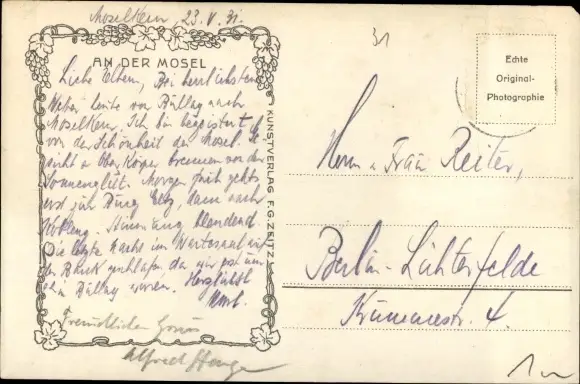 Moselkern, 23.V.31.
AN DER MOSEL
Liebe Eltern, Bei herrlichstem
Wetter heute von Bullay nach
Moselkern. Ich bin begeistert
von der Schönheit der Mosel. Ge-
sicht u. Oberkörper brennen von der
Sonnenglut. Morgen früh gehts
erst zur Burg Eltz, dann nach
Koblenz. Stimmung blendend.
Die letzte Nacht im Wartesaal auf
der Bank geschlafen, da wir erst um
in Bullay waren. Herzlichst
Freundlichen Gruss
Alfred
KUNSTVERLAG F.G. ZEITZ
31
Echte
Original-
Photographie
Herrn u. Frau Reiter,
Berlin-Lichterfelde
4.